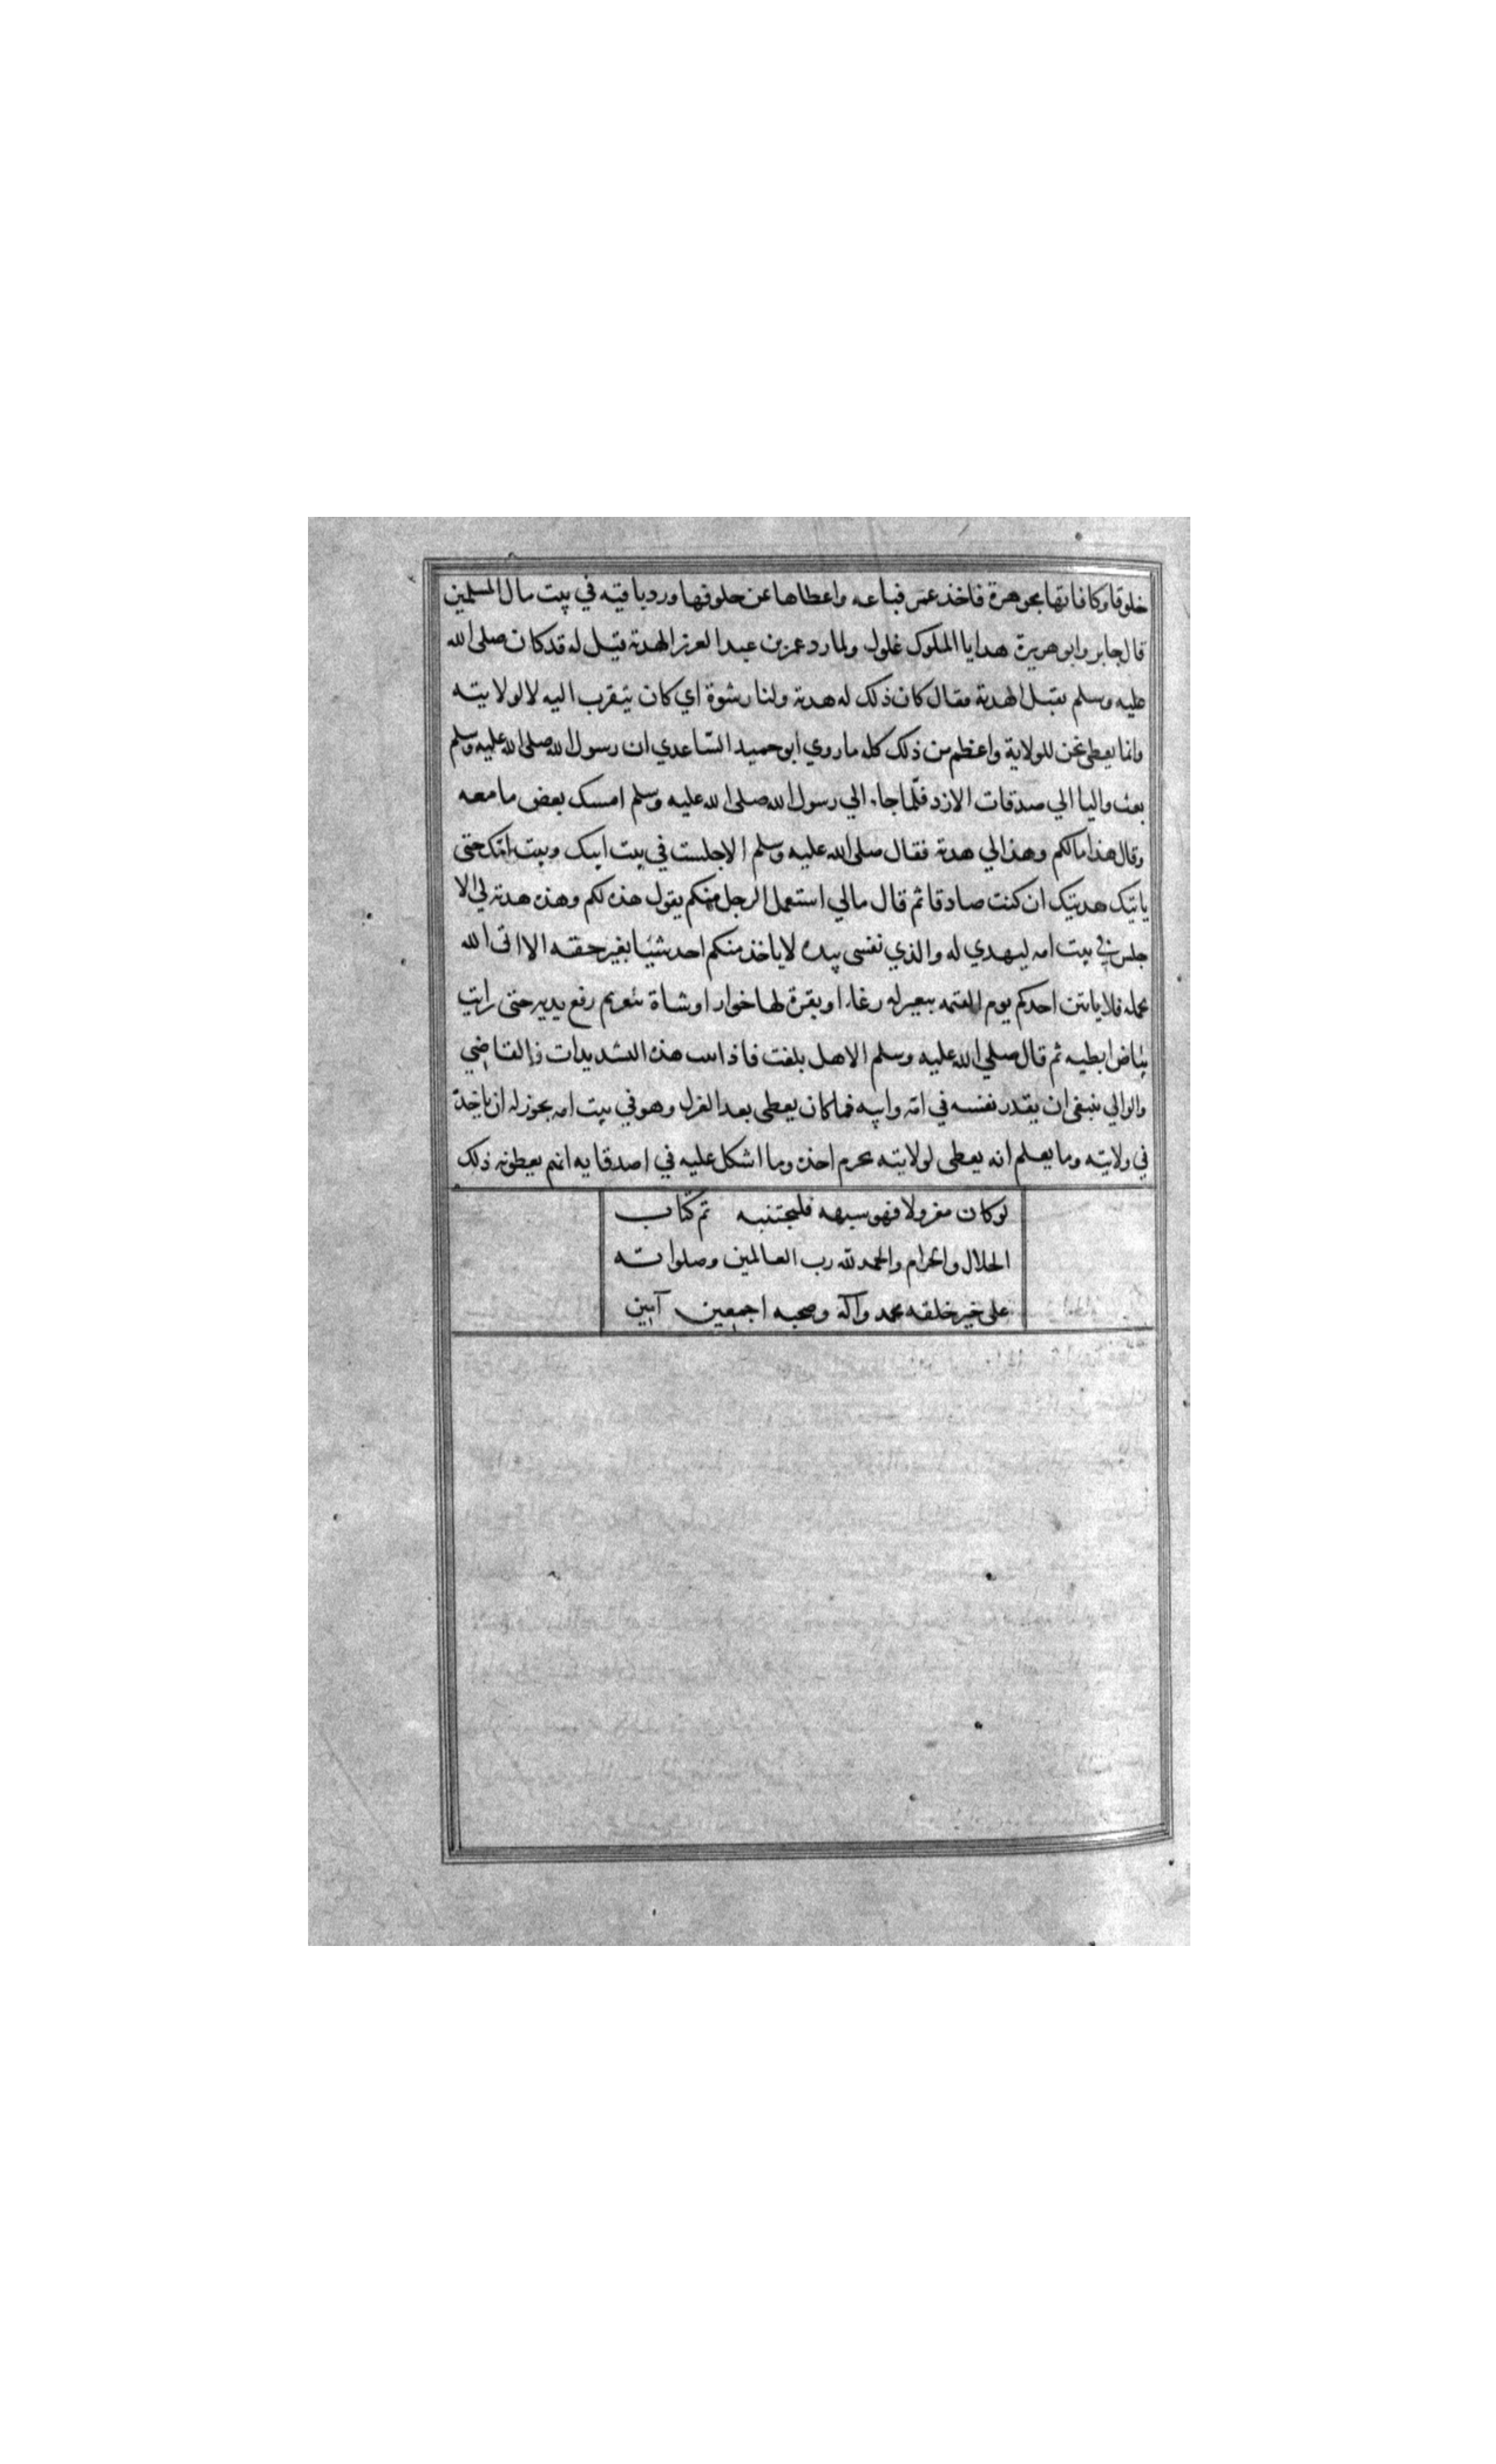 خلوقا وكافاتها بجوهرة فاخذ عمر فباعه واعطاها عن خلوقها ورد باقيه في بيت مال المسلمين
قال جابر وابو هريرة هدايا الملوك غلول ولما رد عمر بن عبد العزيز الهدية قيل له قد كان صلى الله
عليه وسلم يقبل الهدية فقال كان ذلك له هدية ولنا رشوة اي كان يتقرب اليه لا لولايته
وانما يعطى نحن للولاية واعظم من ذلك كله ما روي ابو حميد الساعدي ان رسول الله صلى الله عليه وسلم
بعث واليا الي صدقات الازد فلما جاء الي رسول الله صلى الله عليه وسلم امسك بعض ما معه
وقال هذا مالكم وهذا لي هدية فقال صلى الله عليه وسلم الا جلست في بيت ابيك وبيت امك حتى
ياتيك هديتك ان كنت صادقا ثم قال مالي استعمل الرجل منكم يقول هذه لكم وهذه هدية لي الا
جلس في بيت امه ليهدي له والذي نفسي بيده لا ياخذ منكم احد شيئا بغير حقه الا اتى الله
بحمله فلا ياتين احدكم يوم القيمة ببعير له رغاء او بقرة لها خوار او شاة تيعر ثم رفع يديه حتى رايت
بياض ابطيه ثم قال صلي الله عليه وسلم الا هل بلغت فاذا ثبت هذه التشديدات فالقاضي
والوالي ينبغي ان يقدر نفسه في امه وابيه فما كان يعطى بعد العزل وهو في بيت امه يجوز له ان ياخذه
في ولايته وما يعلم انه يعطى لولايته يحرم اخذه وما اشكل عليه في اصدقايه انهم يعطونه ذلك
لو كان معزولا فهو شبهه فليجتنبه تم كتاب
الحلال والحرام والحمد لله رب العالمين وصلواته
على خير خلقه محمد وآله وصحبه اجمعين آمين